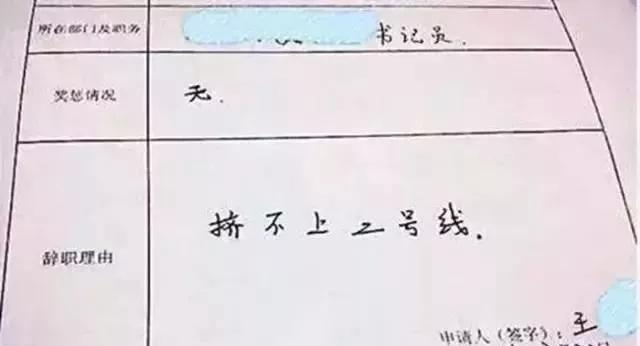 所在部门及职务 书记员.
奖惩情况 无.
辞职理由 挤不上二号线.
申请人(签字): 王